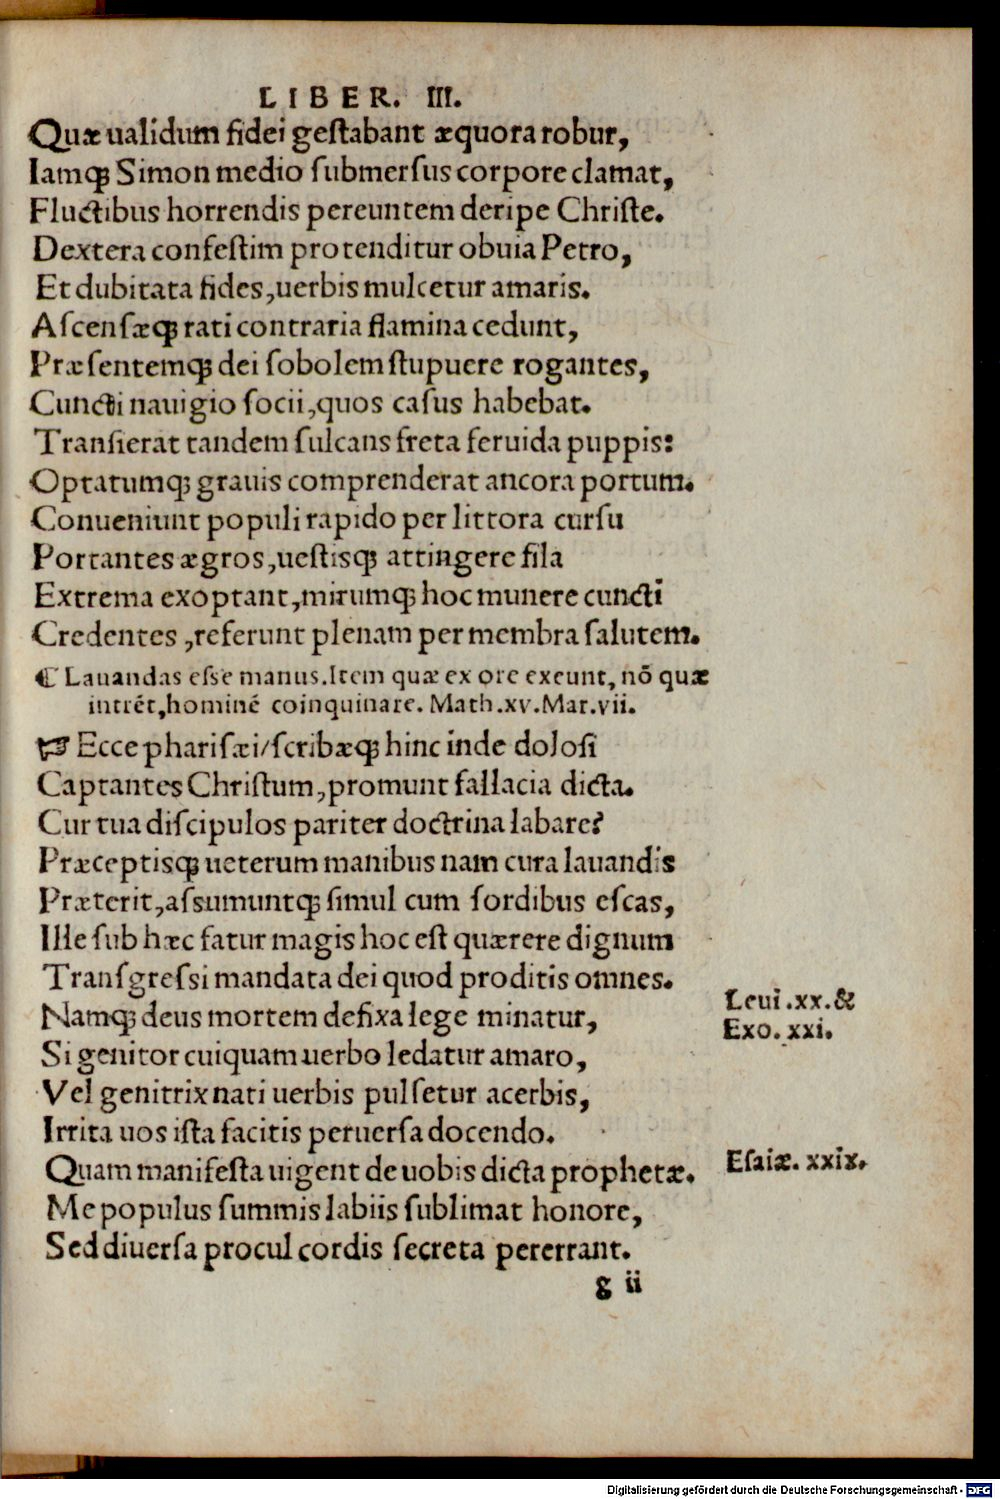 LIBER. III.
Quæ ualidum fidei geſtabant æquora robur,
Iamq; Simon medio ſubmerſus corpore clamat,
Fluctibus horrendis pereuntem deripe Chriſte.
Dextera confeſtim protenditur obuia Petro,
Et dubitata fides, uerbis mulcetur amaris.
Aſcenſæq; rati contraria flamina cedunt,
Præſentemq; dei ſobolem ſtupuere rogantes,
Cuncti nauigio ſocii, quos caſus habebat.
Tranſierat tandem ſulcans freta feruida puppis:
Optatumq; grauis comprenderat ancora portum.
Conueniunt populi rapido per littora curſu
Portantes ægros, ueſtisq; attingere fila
Extrema exoptant, mirumq; hoc munere cuncti
Credentes, referunt plenam per membra ſalutem.
¶ Lauandas eſſe manus. Item quæ ex ore exeunt, nō quæ
intrēt, hominē coinquinare. Math. xv. Mar. vii.
☞ Ecce phariſæi/ ſcribæq; hinc inde doloſi
Captantes Chriſtum, promunt fallacia dicta.
Cur tua diſcipulos pariter doctrina labare?
Præceptisq; ueterum manibus nam cura lauandis
Præterit, aſſumuntq; ſimul cum ſordibus eſcas,
Ille ſub hæc fatur magis hoc eſt quærere dignum
Tranſgreſſi mandata dei quod proditis omnes.
Leui. xx. &
Exo. xxi.
Namq; deus mortem defixa lege minatur,
Si genitor cuiquam uerbo ledatur amaro,
Vel genitrix nati uerbis pulſetur acerbis,
Irrita uos iſta facitis peruerſa docendo.
Eſaiæ. xxix.
Quam manifeſta uigent de uobis dicta prophetæ.
Me populus ſummis labiis ſublimat honore,
Sed diuerſa procul cordis ſecreta pererrant.
g ii
Digitalisierung gefördert durch die Deutsche Forschungsgemeinschaft - DFG